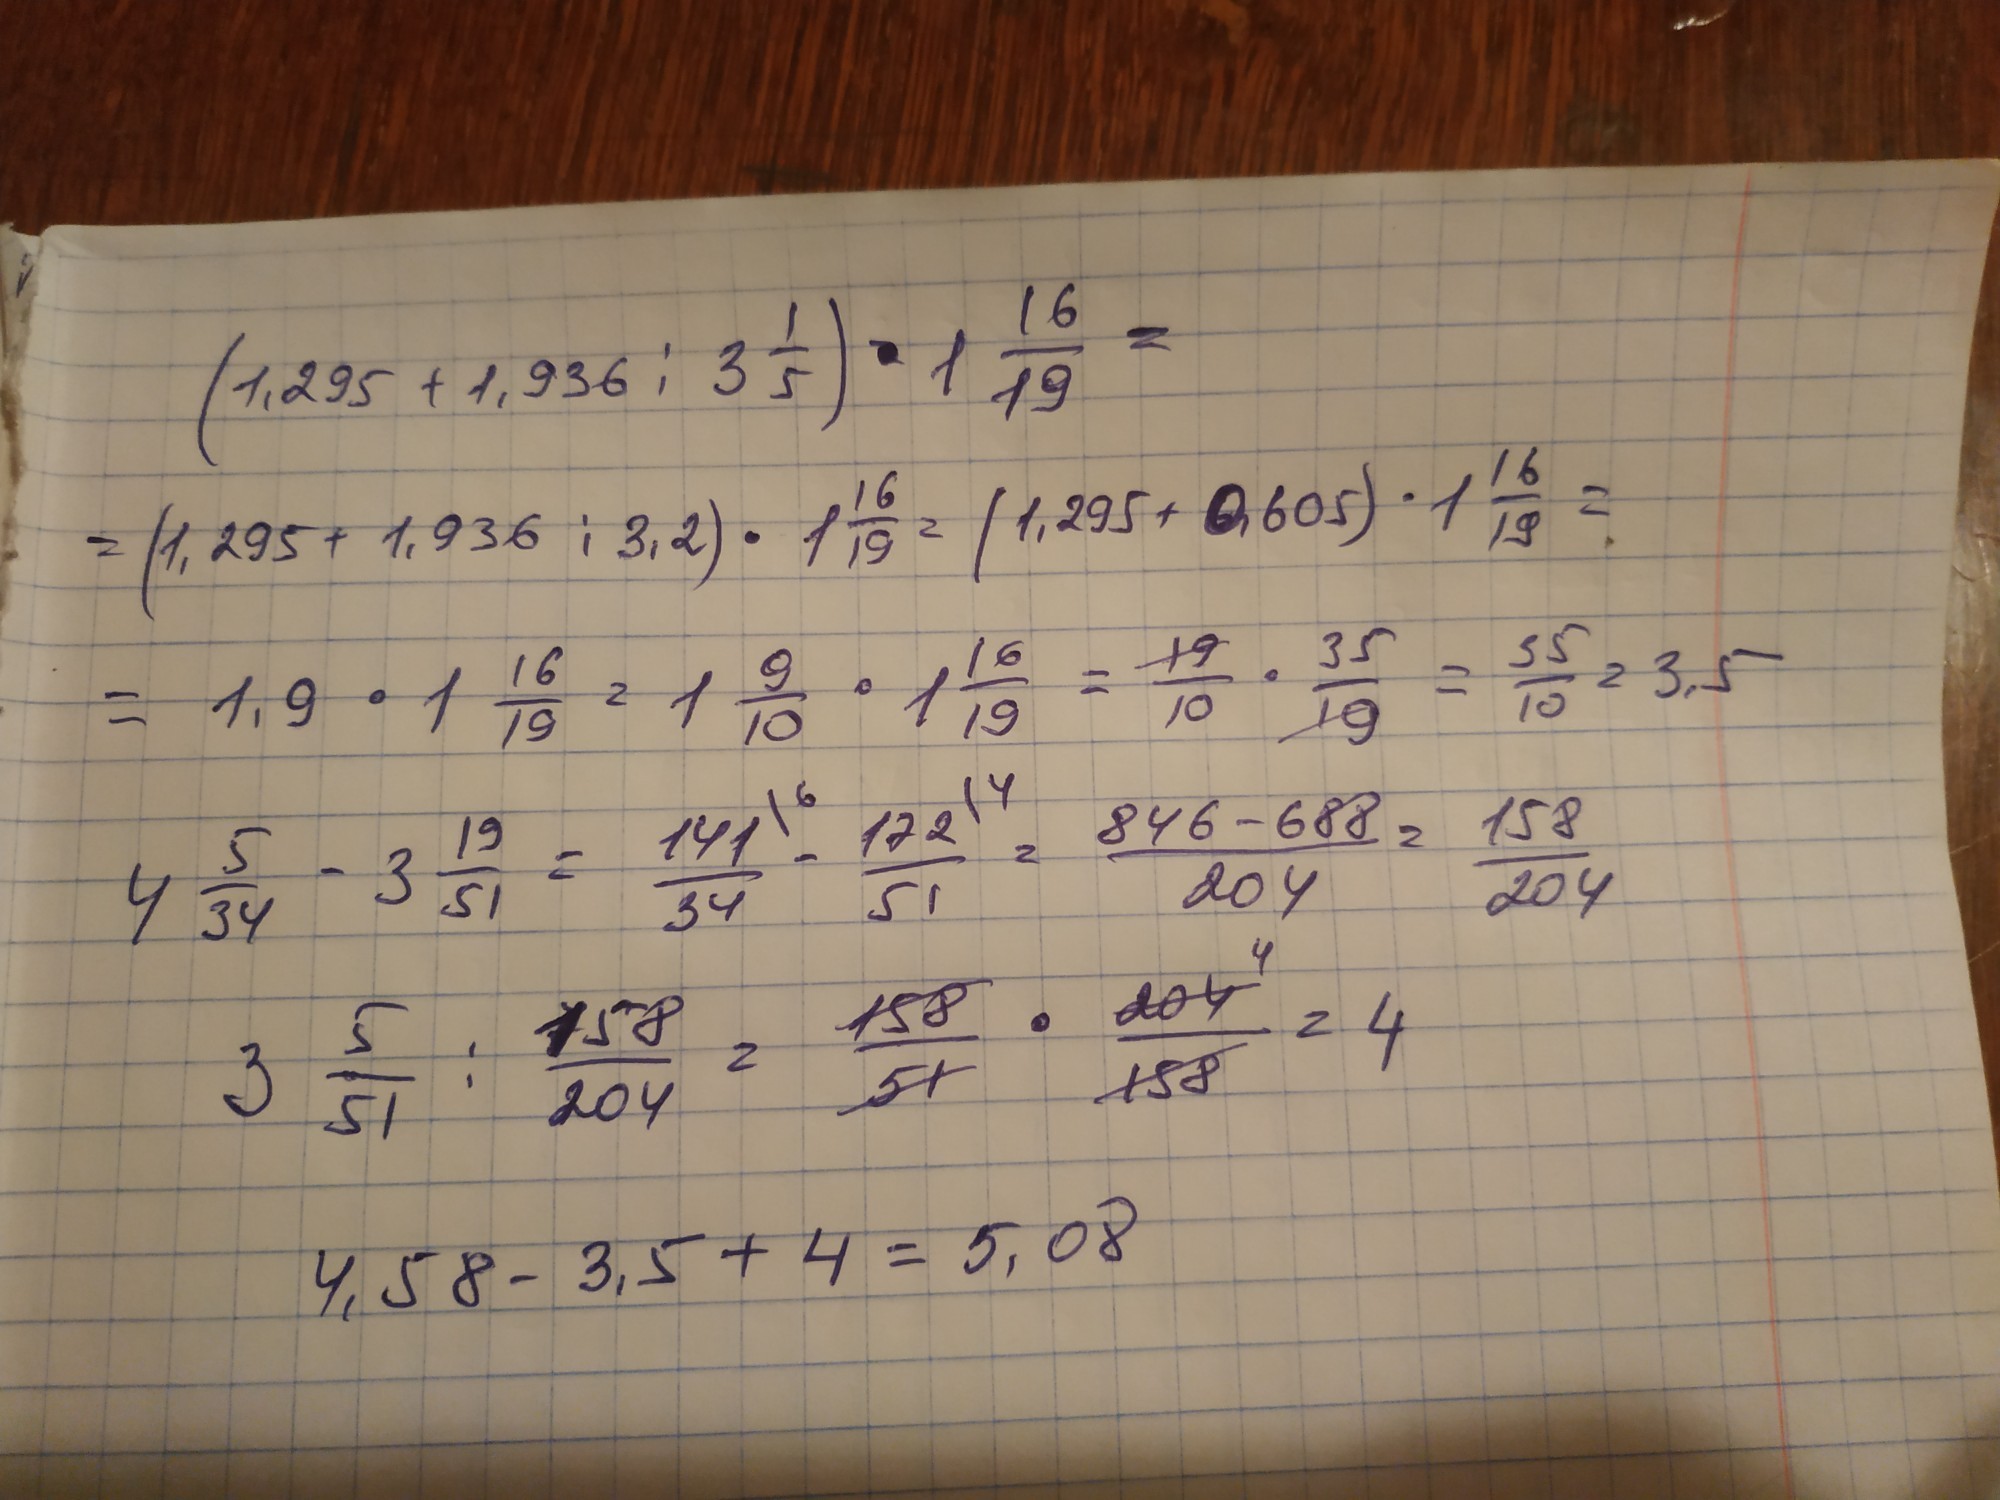 (1,295 + 1,936 : 3 1/5) · 1 16/19 =
= (1,295 + 1,936 : 3,2) · 1 16/19 = (1,295 + 0,605) · 1 16/19 =
= 1,9 · 1 16/19 = 1 9/10 · 1 16/19 = 19/10 · 35/19 = 35/10 = 3,5
4 5/34 - 3 19/51 = 141/34 \6 - 172/51 \4 = 846-688/204 = 158/204
3 5/51 : 158/204 = 158/51 · 204/158 4 = 4
4,58 - 3,5 + 4 = 5,08